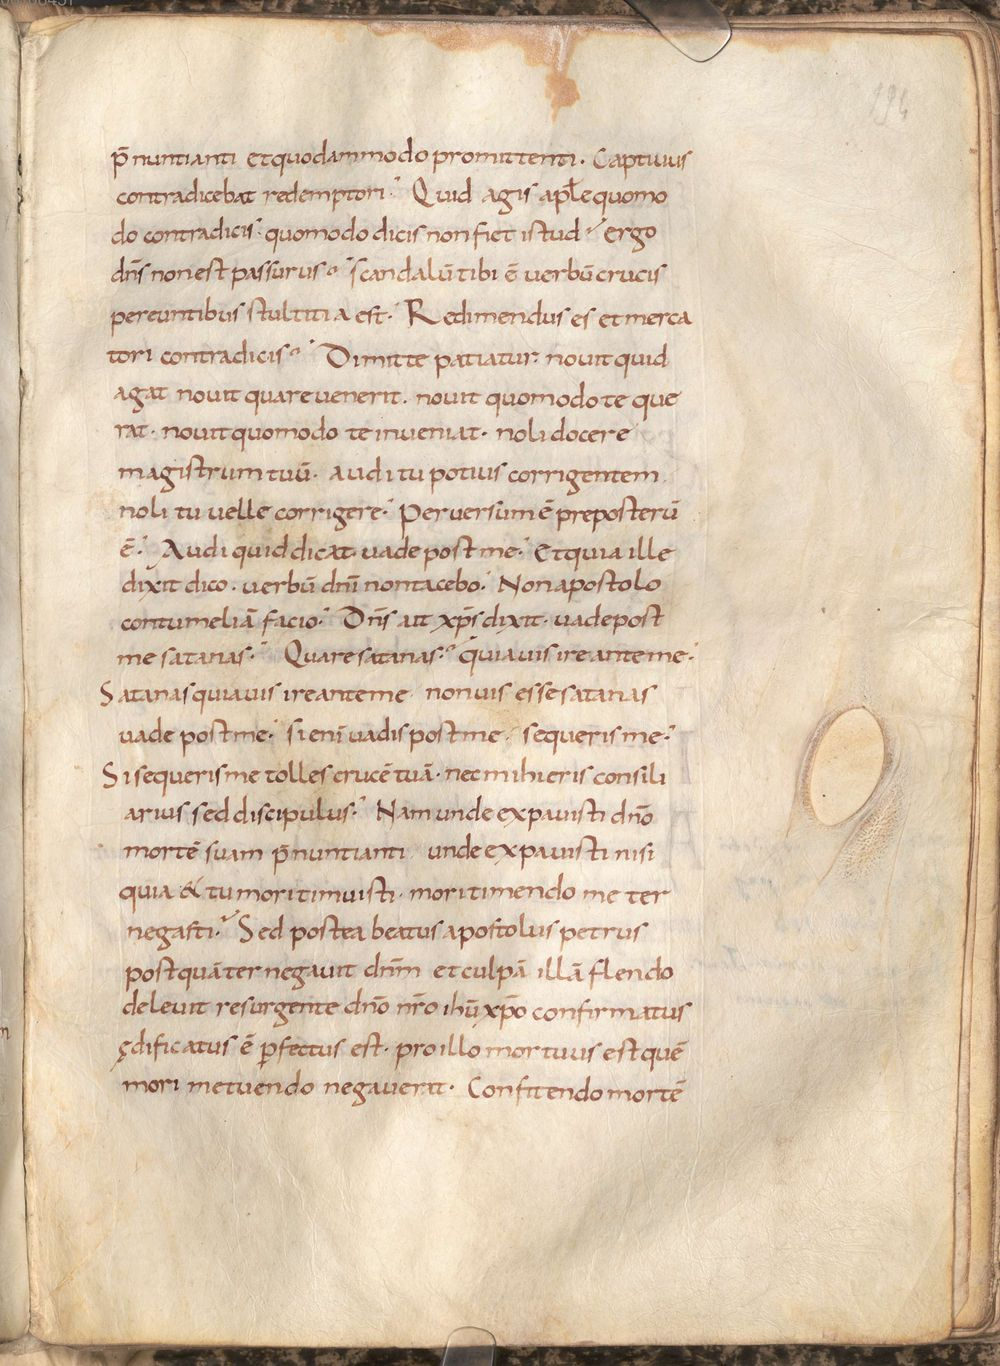 p̄nuntianti et quodammodo promittenti. Captiuus
contradicebat redemptori. Quid agis aptłe quomo
do contradicis. quomodo dicis non fiet istud? ergo
dn̄s non est passurus? scandalū tibi ē uerbū crucis
pereuntibus stultitia est. Redimendus es et merca
tori contradicis? Dimitte patiatur. nouit quid
agat nouit quare uenerit. nouit quomodo te que
rat. nouit quomodo te inueniat. noli docere
magistrum tuū. audi tu potius corrigentem
noli tu uelle corrigere. Peruersum ē preposterū
ē. Audi quid dicat. uade post me. Et quia ille
dixit dico. uerbū dn̄i non tacebo. Non apostolo
contumeliā facio. Dn̄s ait xp̄s dixit. uade post
me satanas. Quare satanas? quia uis ire ante me.
Satanas quia uis ire ante me non uis esse satanas
uade post me. si eni uadis post me. sequeris me.
Si sequeris me tolles crucē tuā. nec mihi eris consili
arius sed discipulus. Nam unde expauisti dn̄o
mortē suam p̄nuntianti unde expauisti nisi
quia & tu mori timuisti. mori timendo me ter
negasti. Sed postea beatus apostolus petrus
postquā ter negauit dn̄m et culpā illā flendo
deleuit resurgente dn̄o nr̄o ihū xp̄o confirmatus
ędificatus ē ꝑfectus est. pro illo mortuus est quē
mori metuendo negauerat. Confitendo mortē